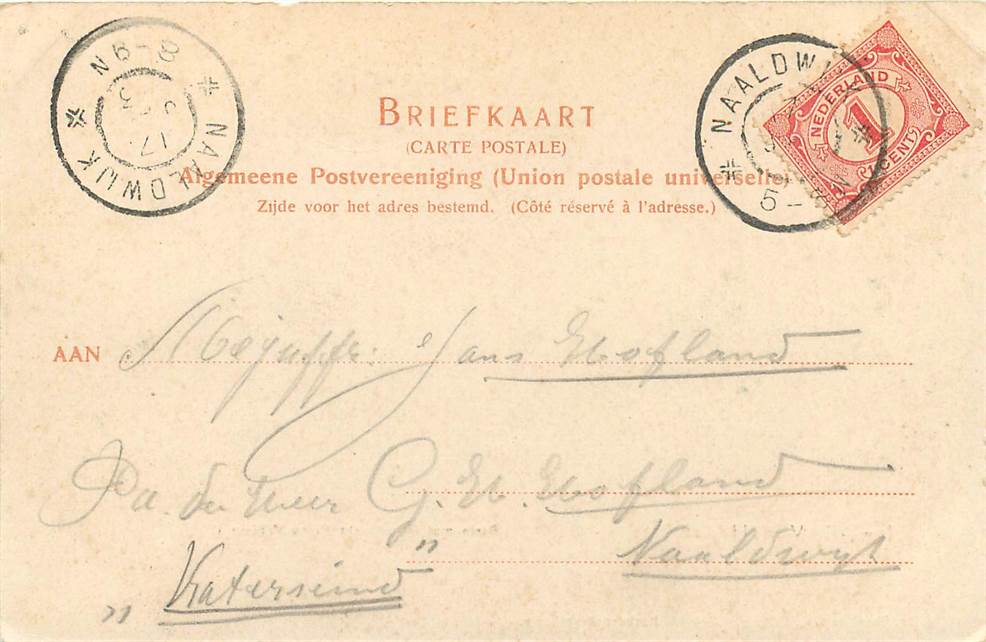 BRIEFKAART
(CARTE POSTALE)
Algemeene Postvereeniging (Union postale universelle)
Zijde voor het adres bestemd. (Côté réservé à l'adresse.)
NAALDWIJK
8-9N
17.
NAALDWIJK
5-
NEDERLAND
1
CENT
AAN Mejuffr: Jans Hofland
Pa. den heer G. H. Hofland
Naaldwyk